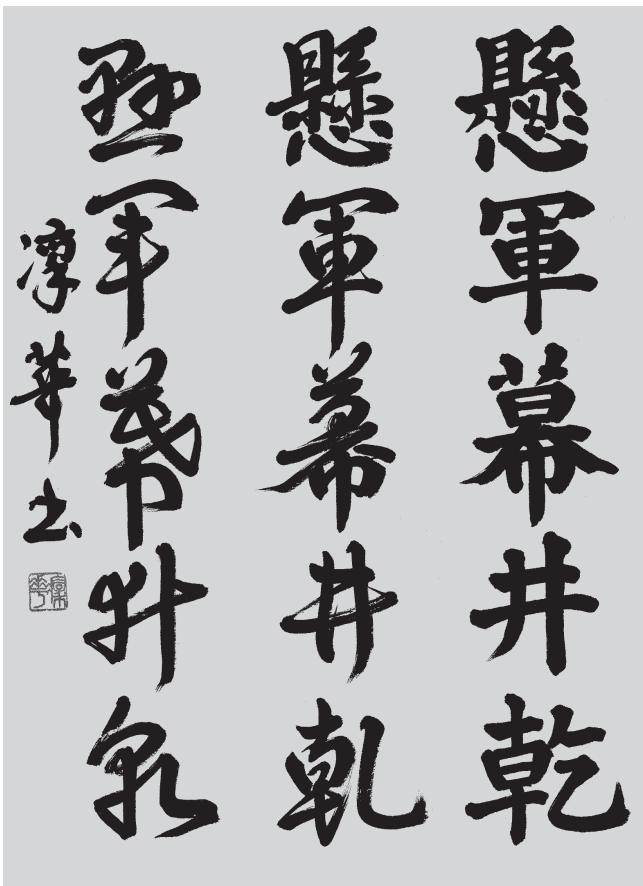 懸軍幕井乾
懸軍幕井乾
懸軍幕井乾
凜華書